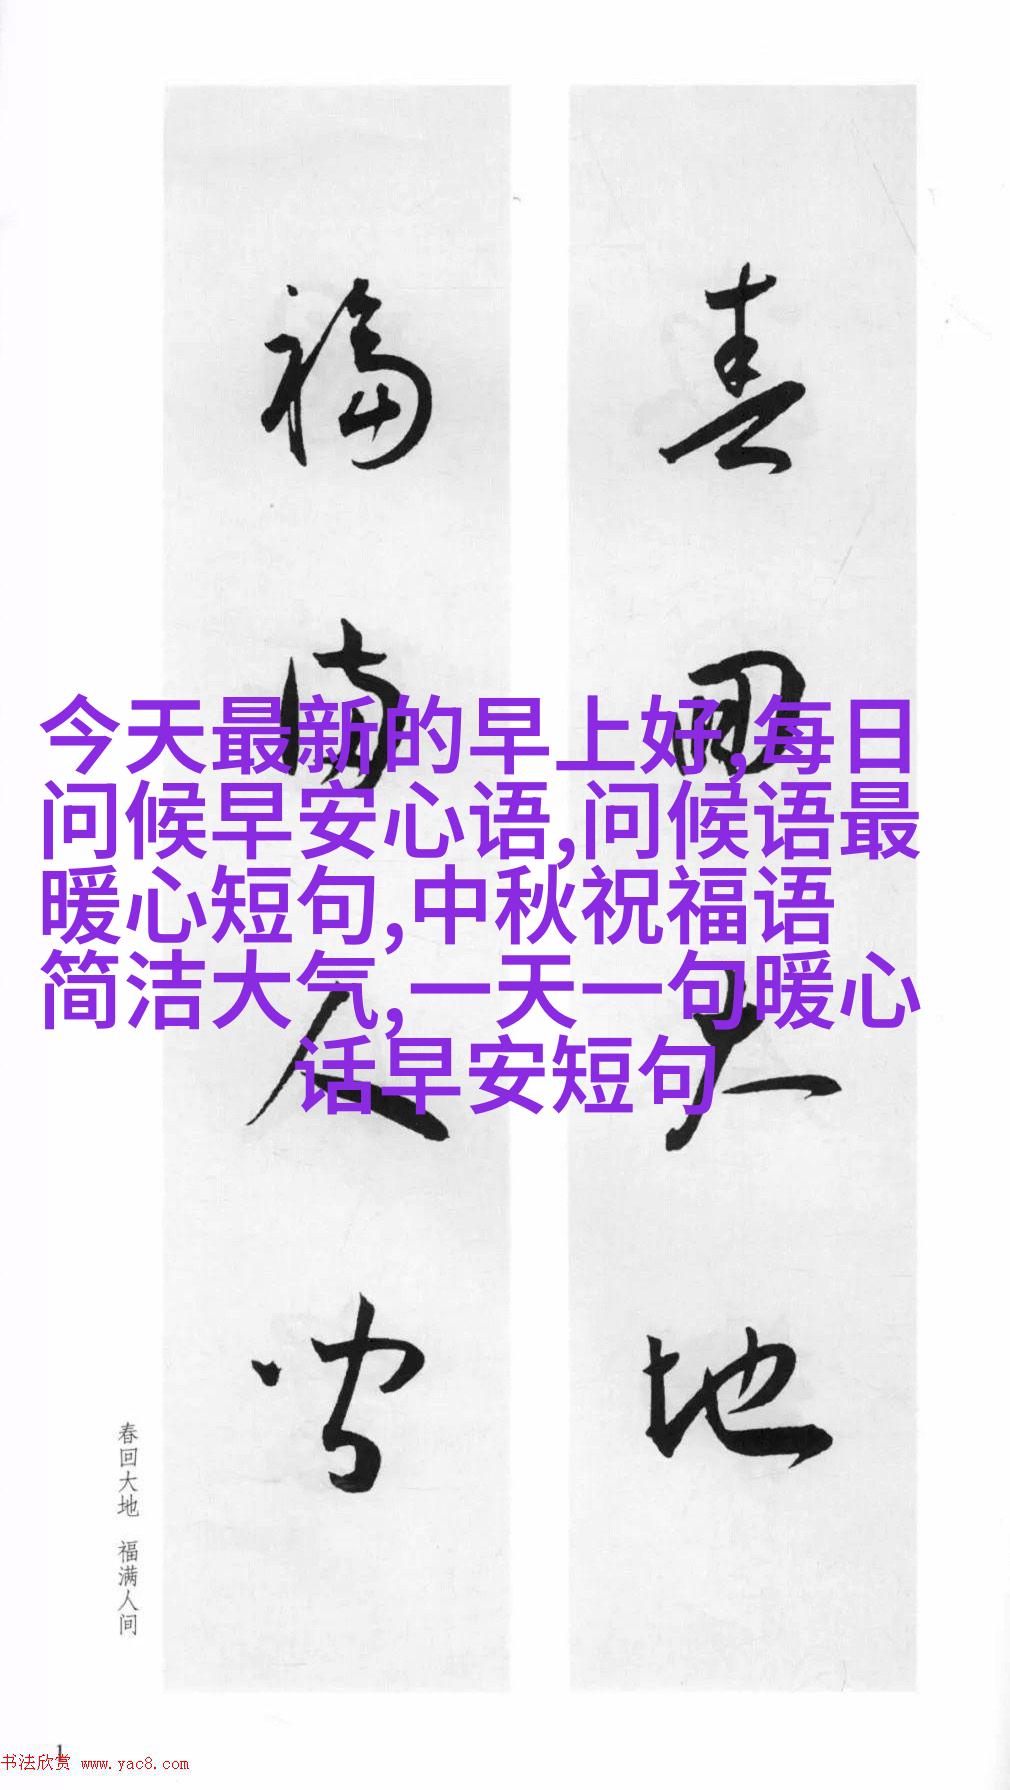 春回大地
福满人间
今天最新的早上好,每日
问候早安心语,问候语最
暖心短句,中秋祝福语
简洁大气,一天一句暖心
话早安短句
春回大地 福满人间
1
书法欣赏 www.yac8.com